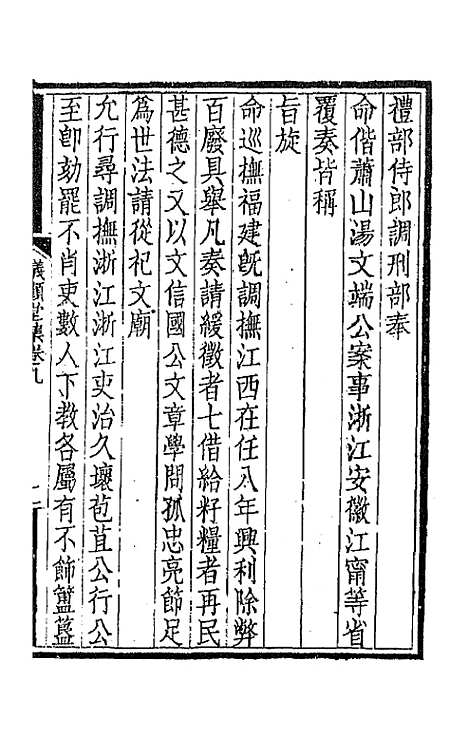 禮部侍郎調刑部奉
命偕蕭山湯文端公案事浙江安徽江甯等省
覆奏皆稱
旨旋
命巡撫福建旣調撫江西在任八年興利除弊
百廢具舉凡奏請緩徵者七借給籽糧者再民
甚德之又以文信國公文章學問孤忠亮節足
爲世法請從祀文廟
允行尋調撫浙江浙江吏治久壞苞苴公行公
至卽劾罷不肖吏數人下教各屬有不飾簠簋
儀顧堂集卷九